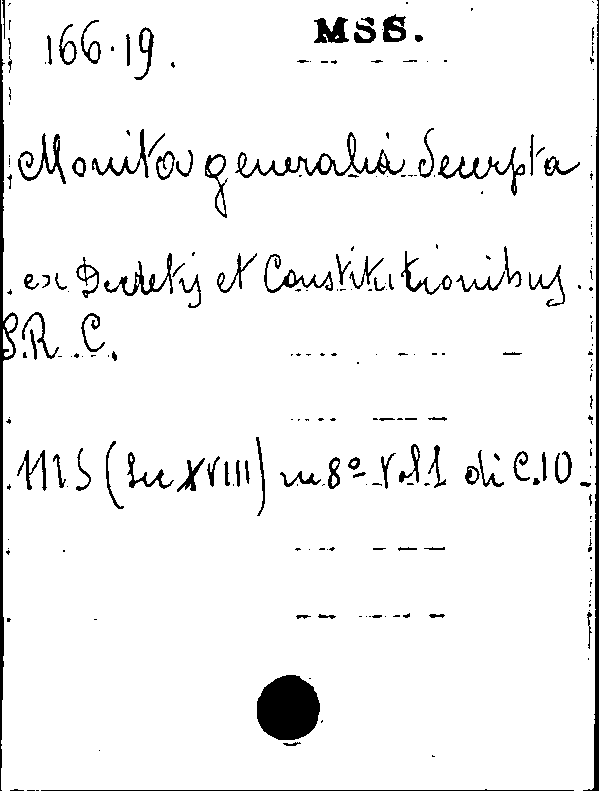 166.19.
MSS.
Monita generalia decerpta
ex Decretis et Constitutionibus
S.R.C.
MS (Sec XVIII) in 8º Vol 1 di C. 10